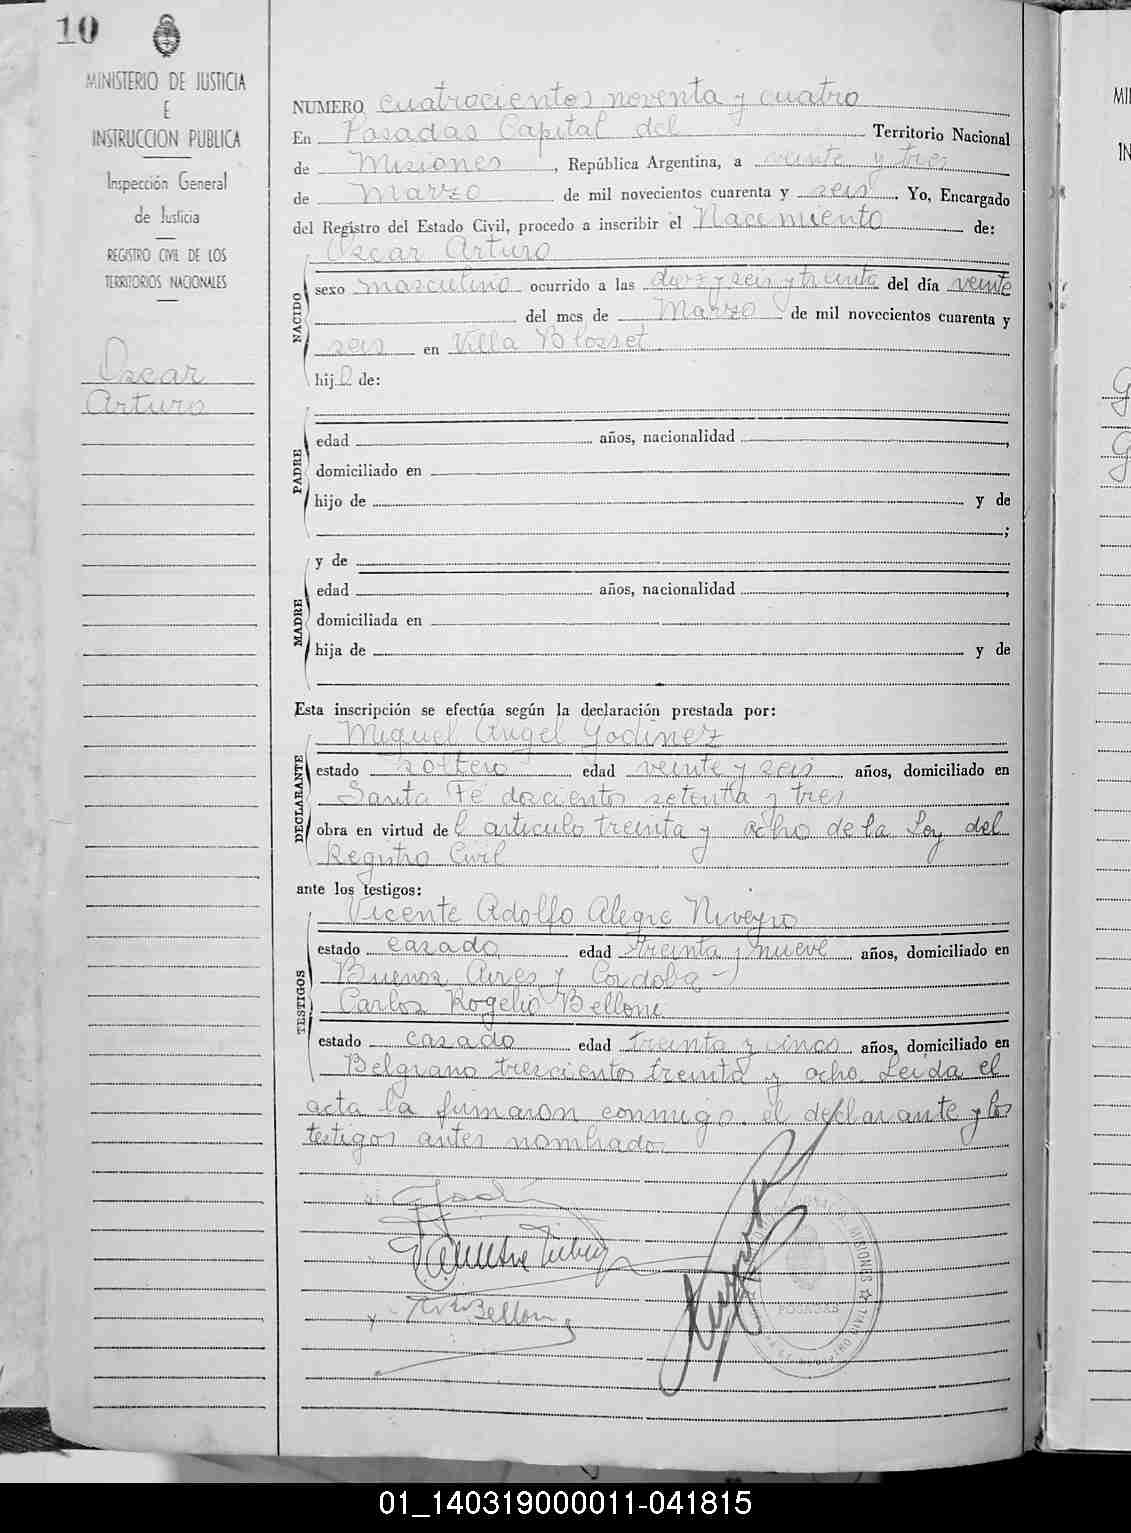 10
MINISTERIO DE JUSTICIA
E
INSTRUCCION PUBLICA
Inspección General
de Justicia
REGISTRO CIVIL DE LOS
TERRITORIOS NACIONALES
Oscar
Arturo
NUMERO cuatrocientos noventa y cuatro
En Posadas Capital del Territorio Nacional
de Misiones, República Argentina, a veinte y tres
de Marzo de mil novecientos cuarenta y seis. Yo, Encargado
del Registro del Estado Civil, procedo a inscribir el Nacimiento de:
Oscar Arturo
NACIDO
sexo masculino ocurrido a las diez y seis y treinta del día veinte
del mes de Marzo de mil novecientos cuarenta y
seis en Villa Blosset
hijo de:
PADRE
edad años, nacionalidad ,
domiciliado en
hijo de y de
;
y de
MADRE
edad años, nacionalidad ,
domiciliada en
hija de y de
Esta inscripción se efectúa según la declaración prestada por:
Miguel Angel Godinez
DECLARANTE
estado soltero edad veinte y seis años, domiciliado en
Santa Fé doscientos setenta y tres
obra en virtud del articulo treinta y ocho de la Ley del
Registro Civil
ante los testigos:
Vicente Adolfo Alegre Niveyro
TESTIGOS
estado casado edad treinta y nueve años, domiciliado en
Buenos Aires y Cordoba -
Carlos Rogelio Belloni
estado casado edad treinta y cinco años, domiciliado en
Belgrano trescientos treinta y ocho. Leida el
acta la firmaron conmigo. el declarante y los
testigos antes nombrados.
Belloni
MISIONES
POSADAS
MI
IN
G
G
01_140319000011-041815